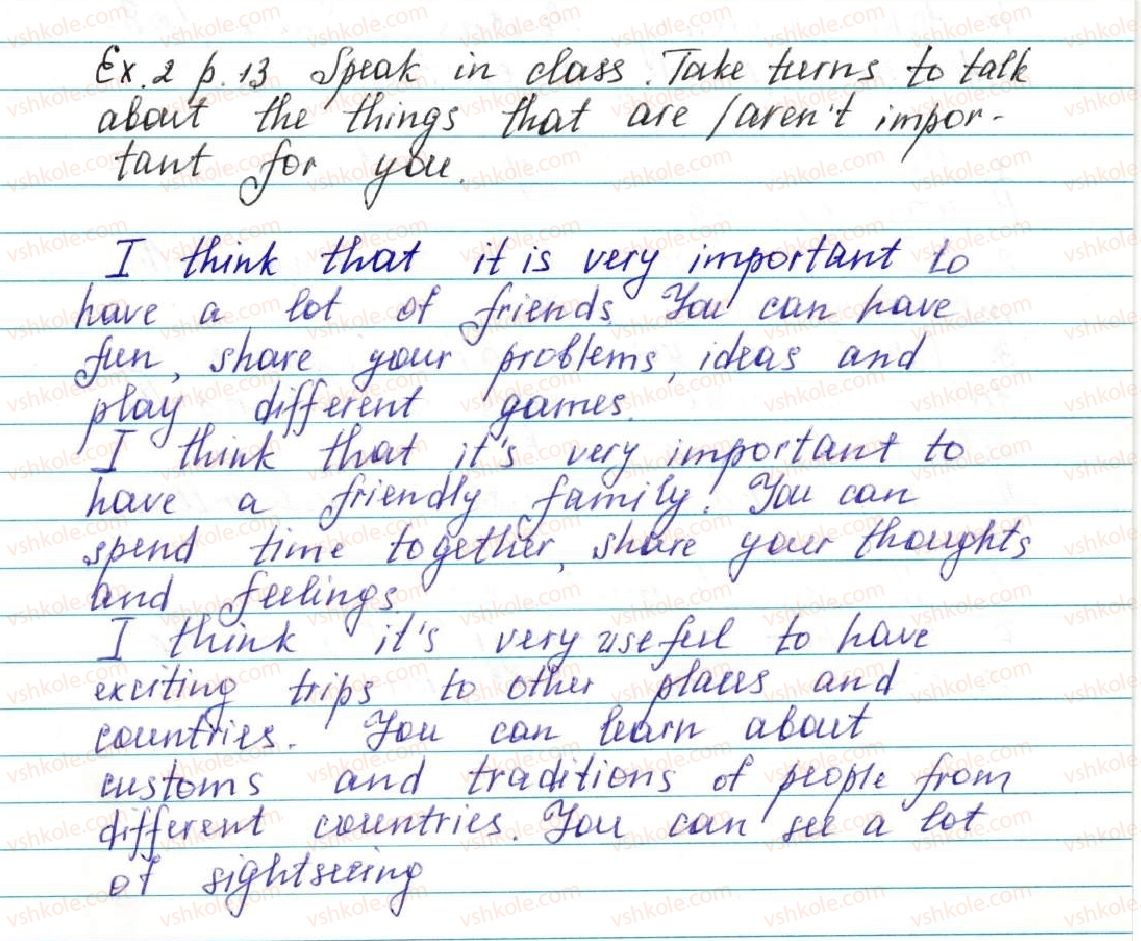 Ex. 2 p. 13 Speak in class. Take turns to talk
about the things that are / aren't impor-
tant for you.
I think that it is very important to
have a lot of friends. You can have
fun, share your problems, ideas and
play different games.
I think that it's very important to
have a friendly family. You can
spend time together, share your thoughts
and feelings.
I think it's very useful to have
exciting trips to other places and
countries. You can learn about
customs and traditions of people from
different countries. You can see a lot
of sightseeing
vshkole.com